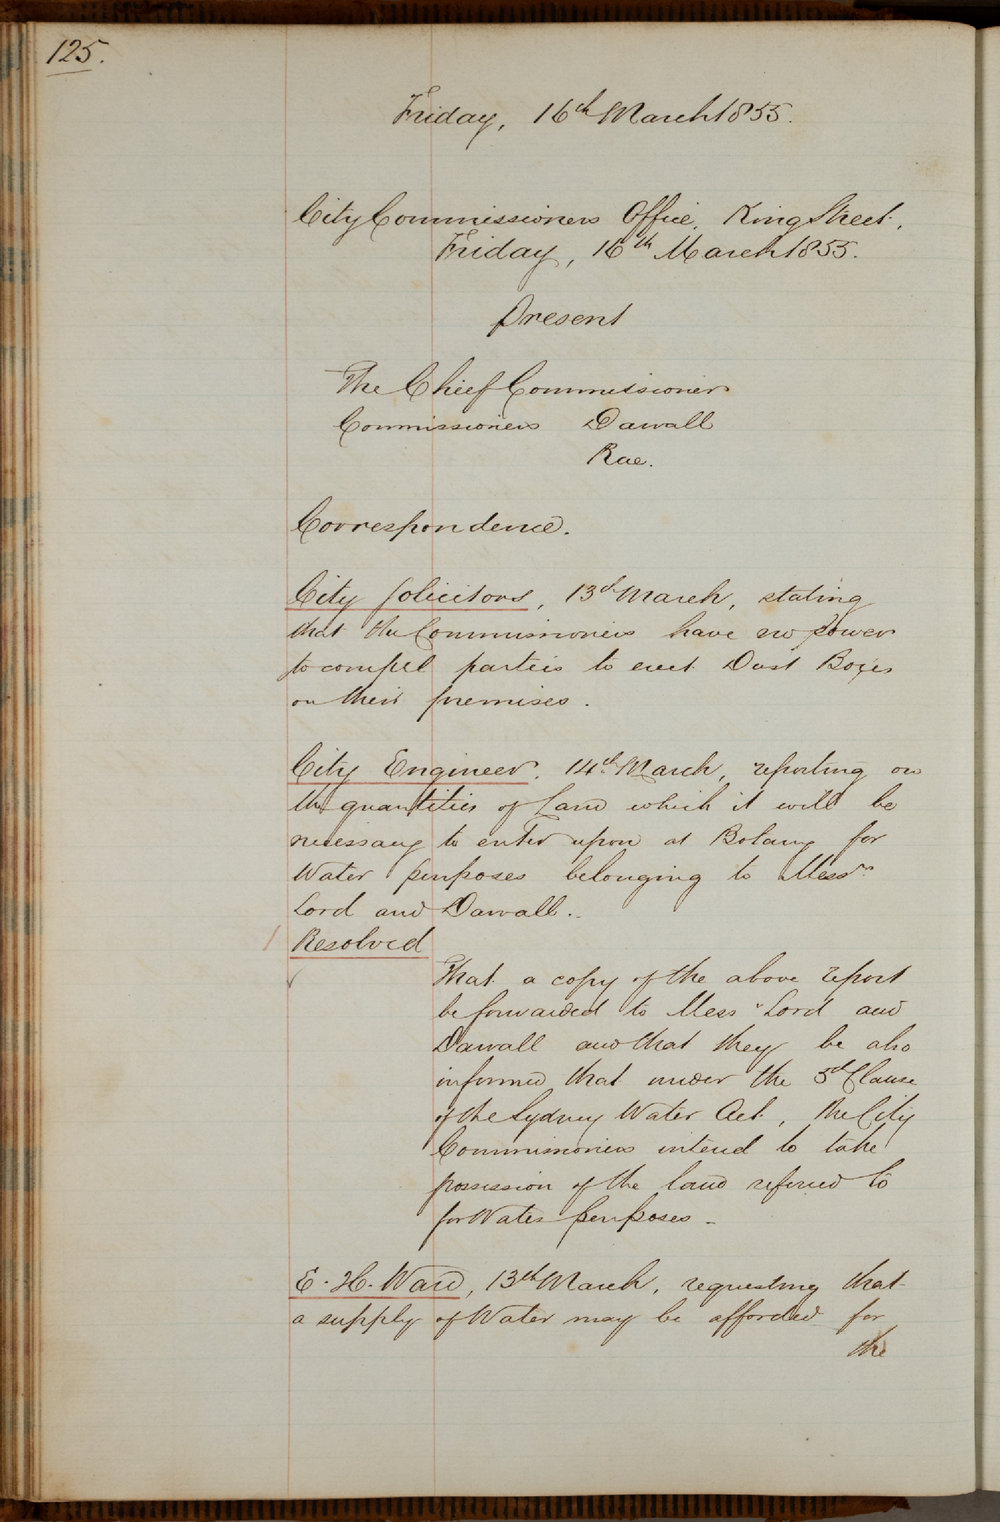 125.
Friday, 16th March 1855.
City Commissioners Office, King Street,
Friday, 16th March 1855.
Present
The Chief Commissioner
Commissioners Darvall
Rae.
Correspondence.
City Solicitors, 13th March, stating
that the Commissioners have no power
to compel parties to erect Dust Boxes
on their premises.
City Engineer, 14th March, reporting on
the quantities of Land which it will be
necessary to enter upon at Botany for
Water purposes belonging to Messrs
Lord and Darvall.
Resolved
That a copy of the above report
be forwarded to Messrs Lord and
Darvall and that they be also
informed that under the 5th Clause
of the Sydney Water Act, the City
Commissioners intend to take
possession of the land referred to
for Water purposes -
E. H. Ward, 13th March, requesting that
a supply of Water may be afforded for
the